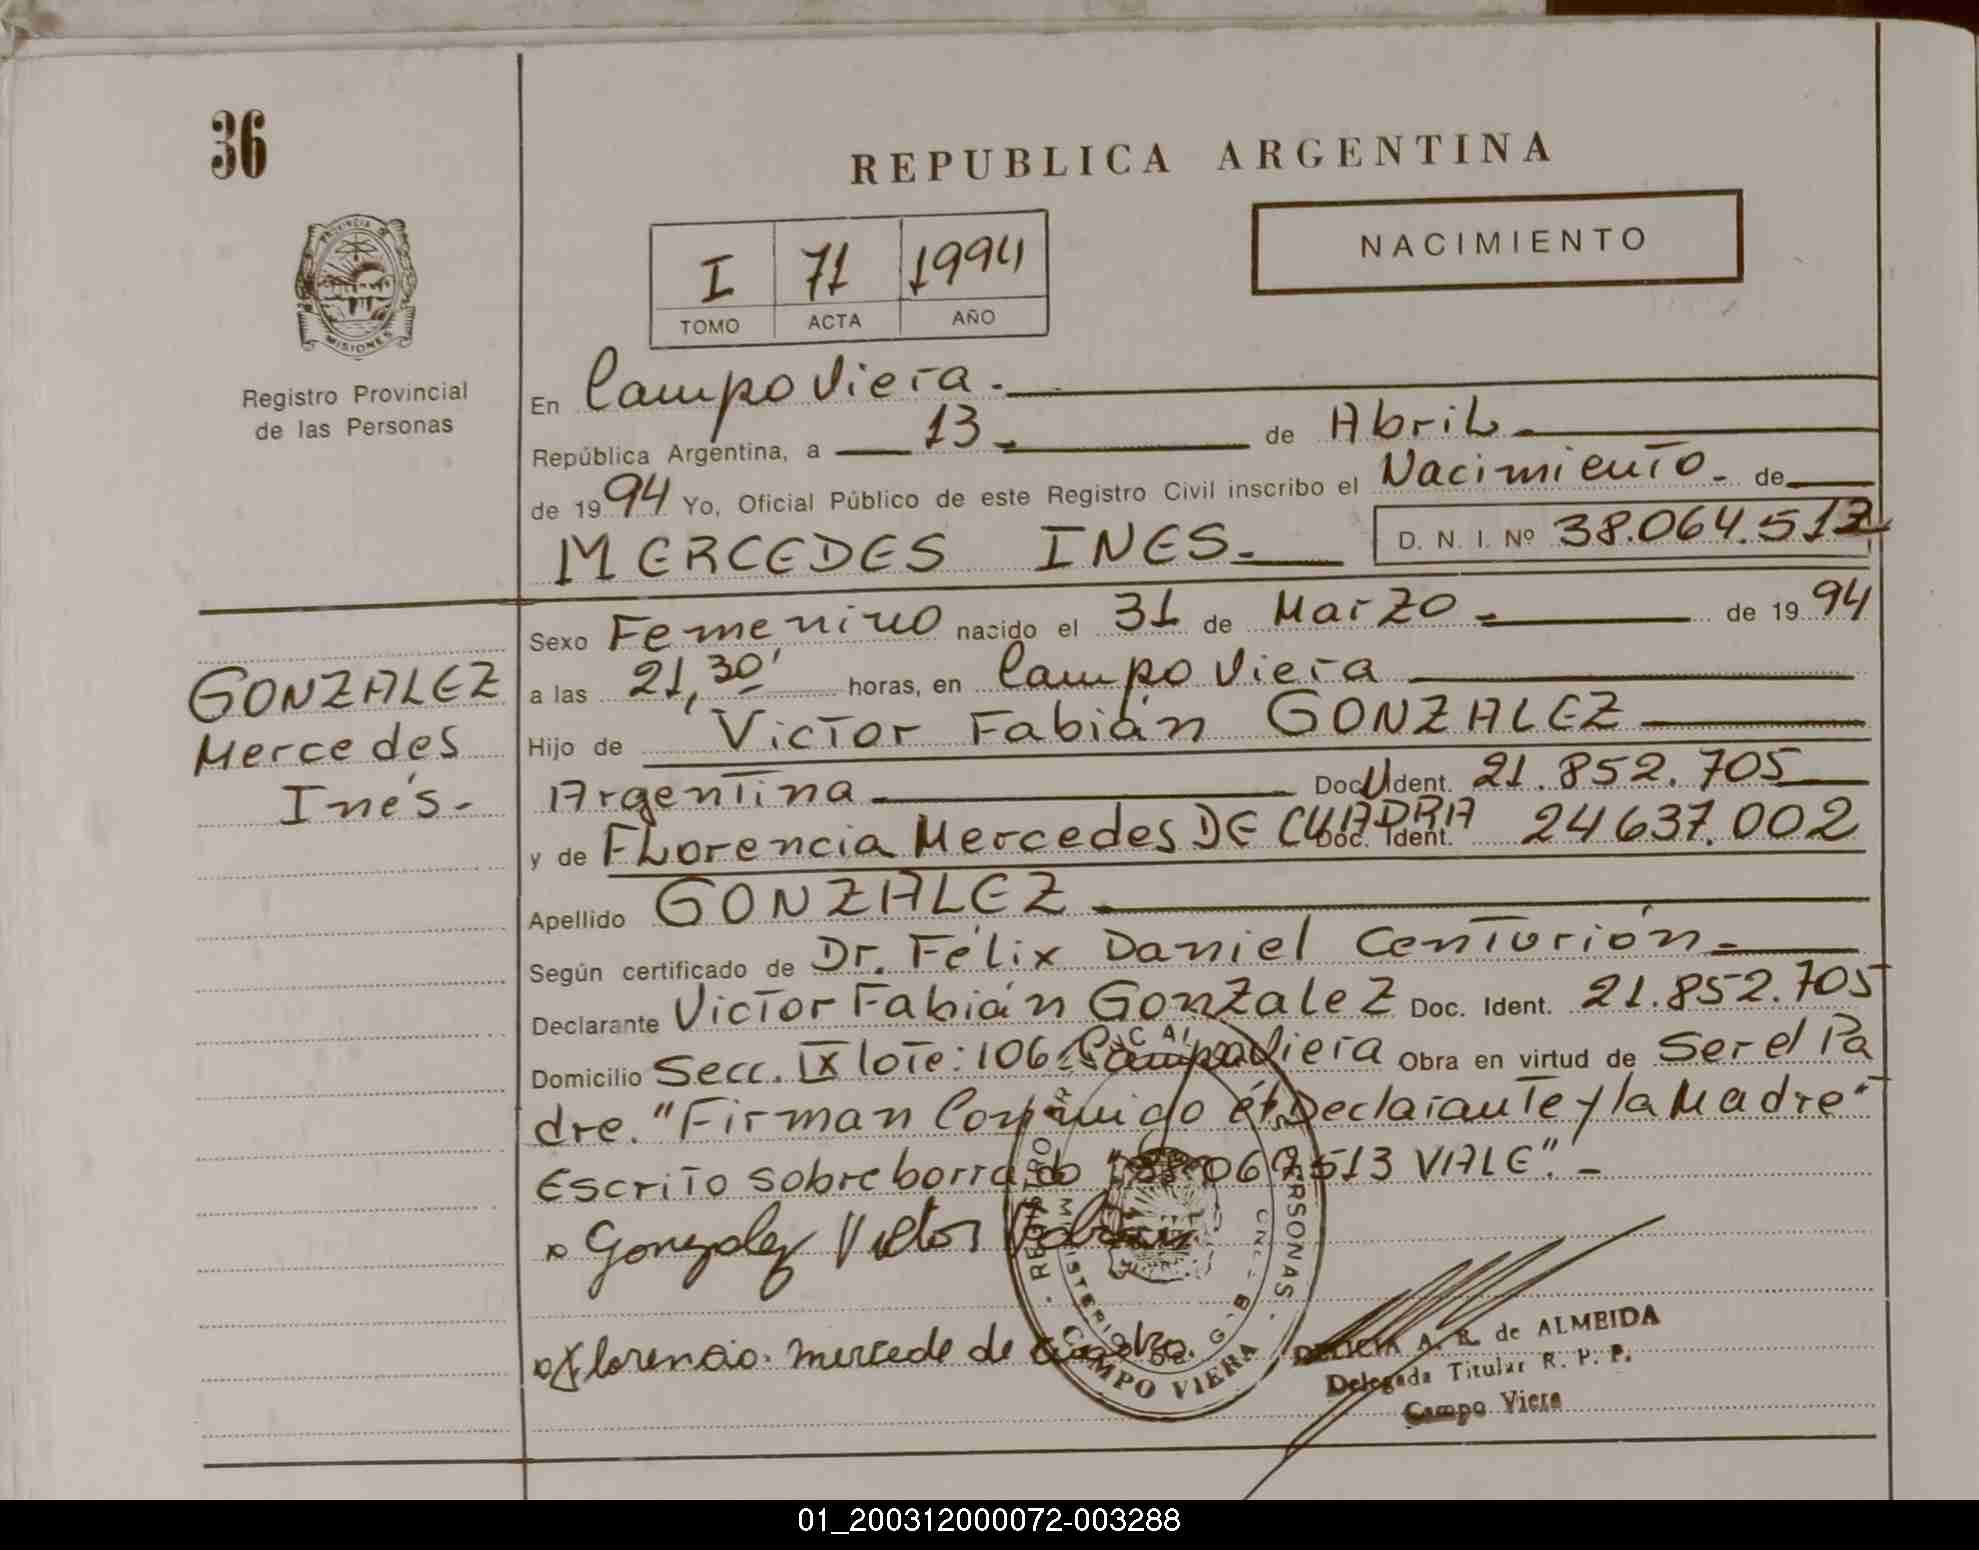 36
REPUBLICA ARGENTINA
NACIMIENTO
I 71 1994
TOMO ACTA AÑO
PROVINCIA DE
MISIONES
Registro Provincial
de las Personas
En Campo Viera.
República Argentina, a 13 de Abril
de 1994 Yo, Oficial Público de este Registro Civil inscribo el Nacimiento de
MERCEDES INES D. N. I. Nº 38.064.513
Sexo Femenino nacido el 31 de Marzo de 1994
a las 21,30' horas, en Campo Viera
Hijo de Victor Fabián GONZALEZ
Argentina Doc. U Ident. 21.852.705
y de Florencia Mercedes DE CUADRA Doc. Ident. 24637.002
Apellido GONZALEZ
Según certificado de Dr. Félix Daniel Centurión
Declarante Victor Fabián GonZaleZ Doc. Ident. 21.852.705
Domicilio Secc. IX lote: 106 Campo Viera Obra en virtud de Ser el Pa
dre. "Firman Conmigo él Declarante y la Madre"
Escrito sobre borrado 513 VALE".
Gonzalez Victor
Florencia mercede de
GONZALEZ
Mercedes
Inés-
REGISTRO PERSONAS
CAMPO VIERA
A. R. de ALMEIDA
Delegada Titular R. P. P.
Campo Viera
01_200312000072-003288